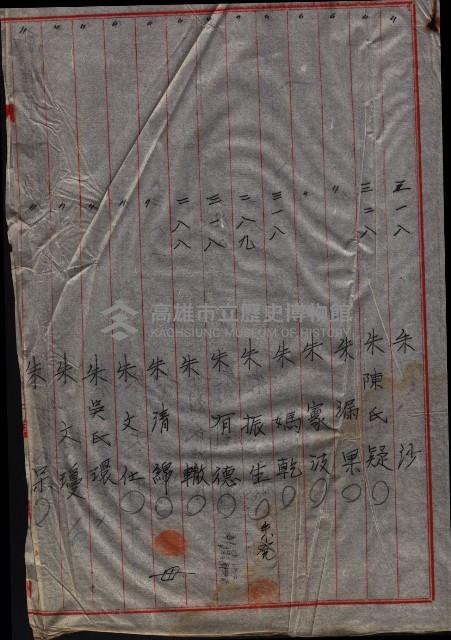 五一八 朱 沙
三二八 朱陳氏疑
〃 朱漏果
〃 朱寡波
三一八 朱媽乾
二八九 朱振生 朱発
三一八 朱有德
二八八 朱 轍
〃 朱清綿
〃 朱文仕
〃 朱吳氏環
〃 朱文瓊
〃 朱 呆
高雄市立歷史博物館
KAOHSIUNG MUSEUM OF HISTORY